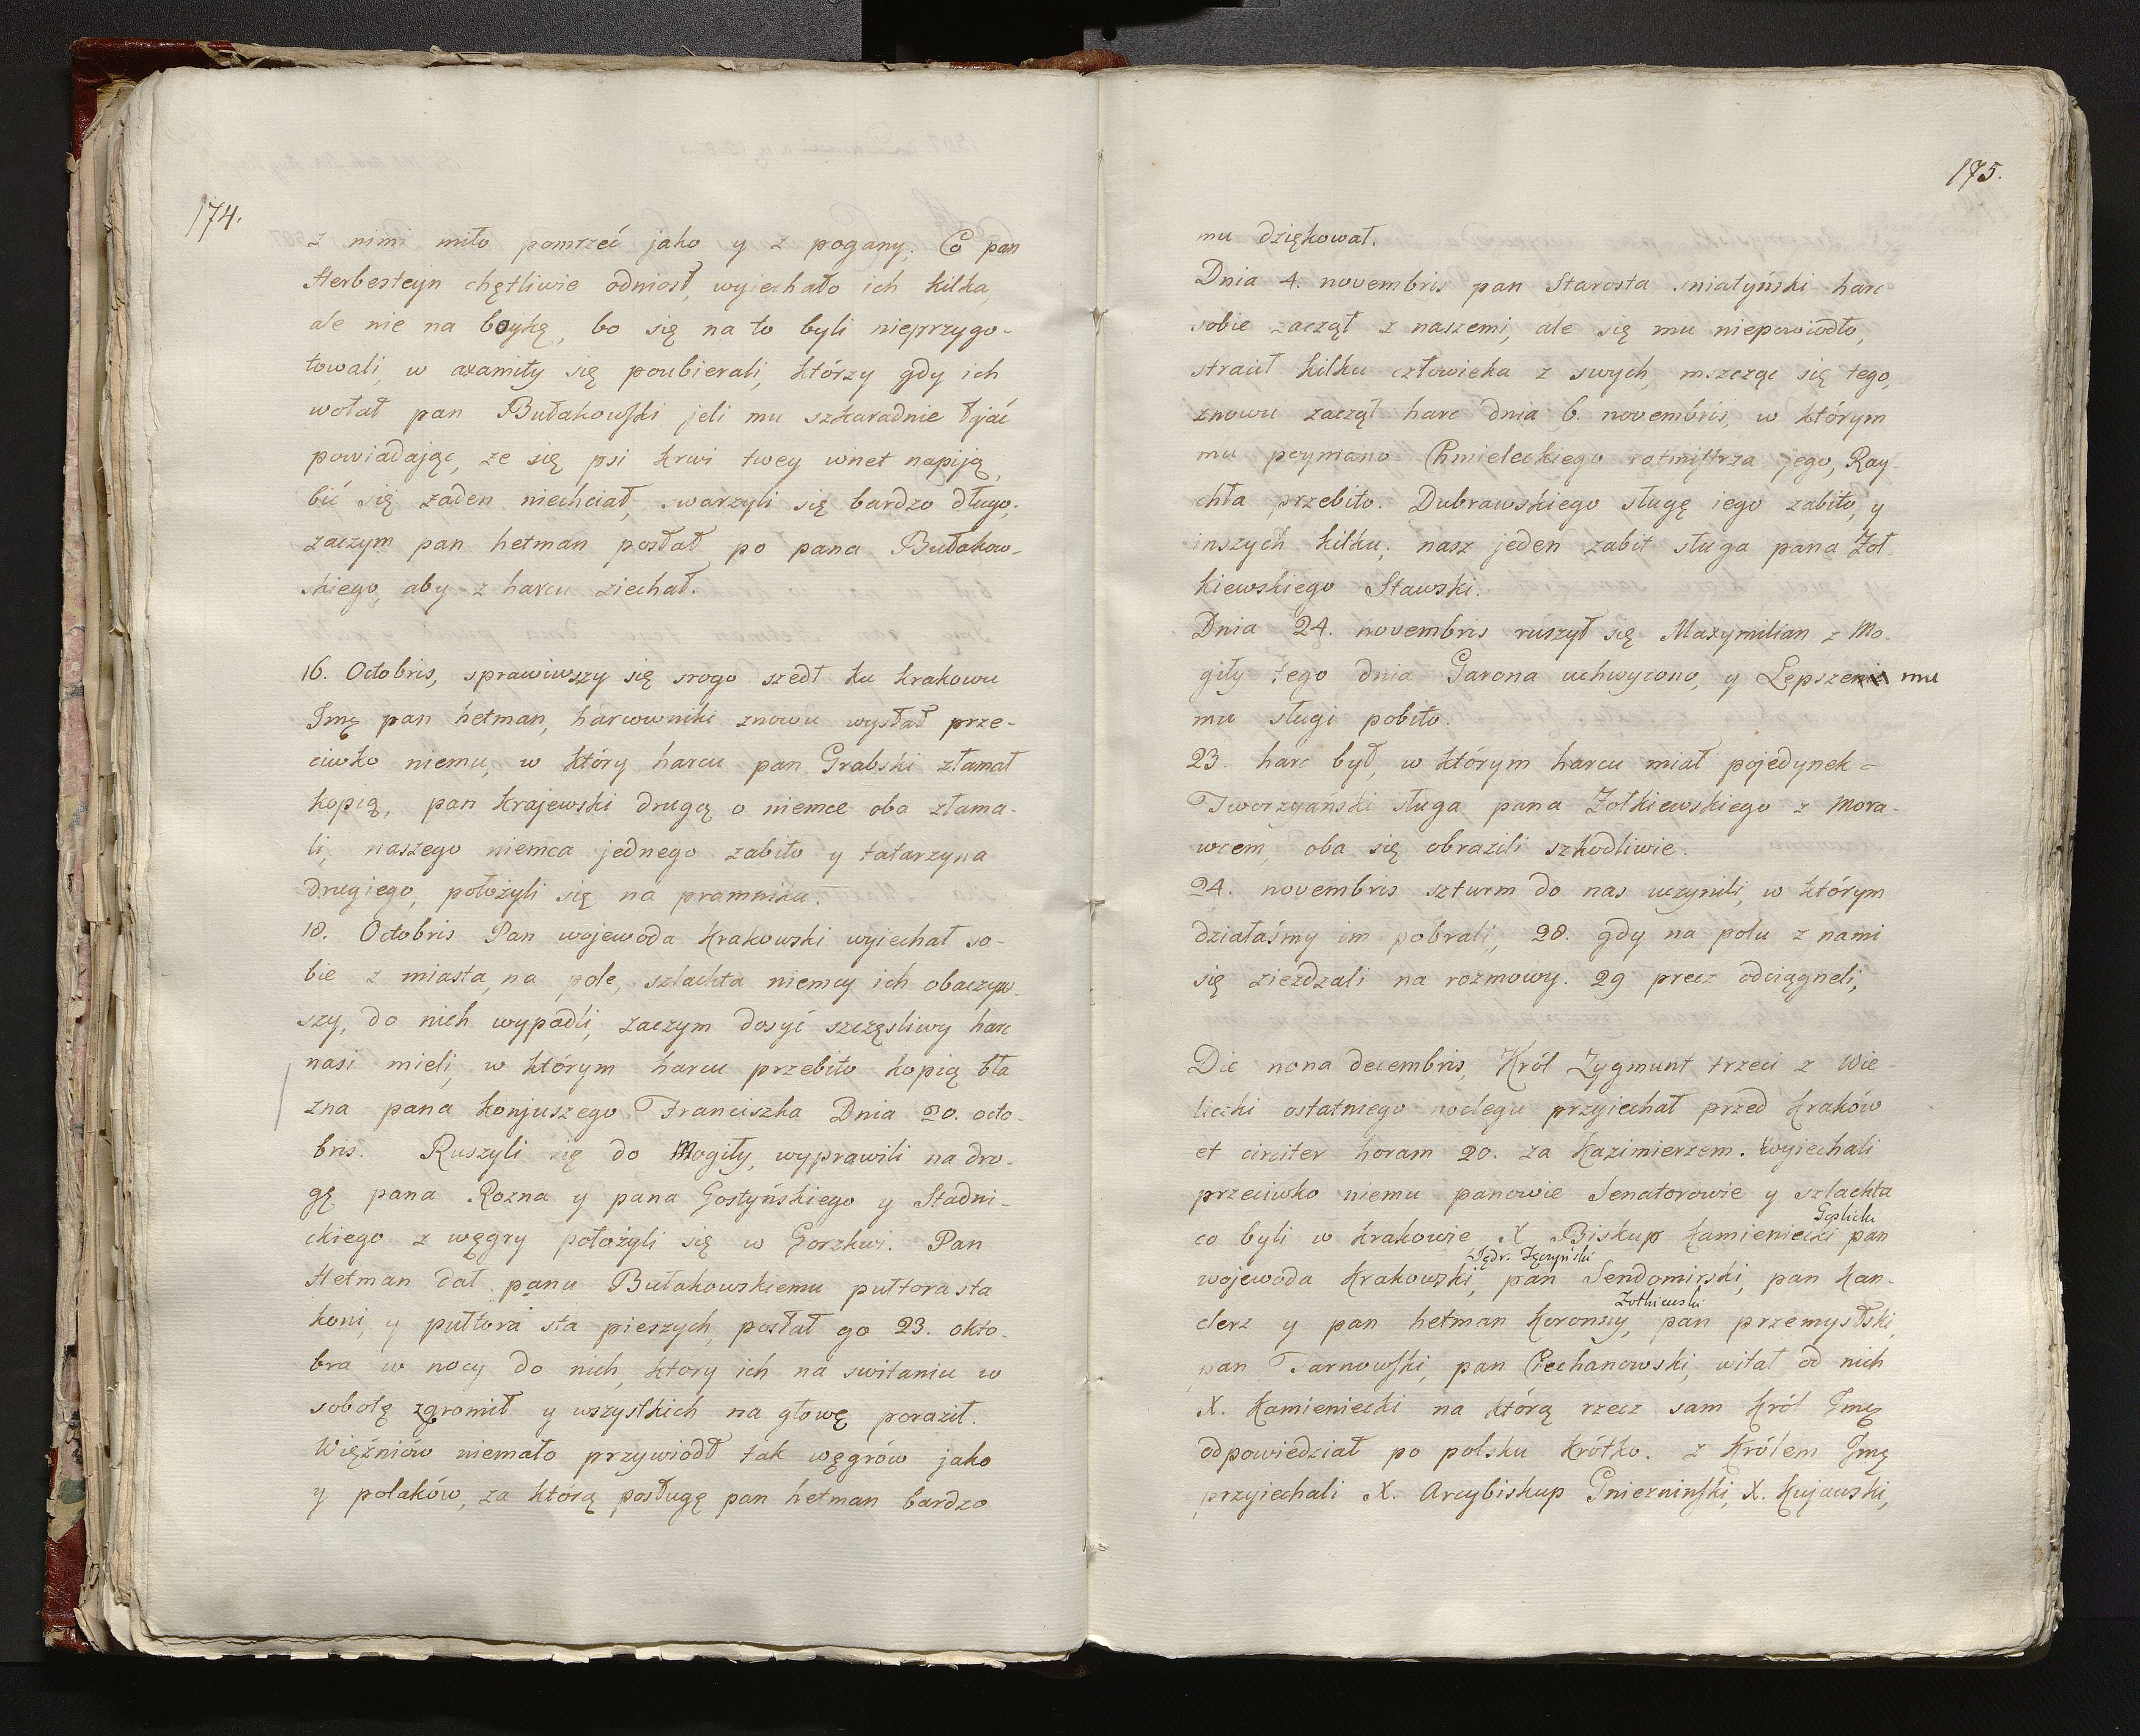 174.
z nimi miło pomrzeć jako y z pogany; Co pan
Herbesteyn chętliwie odniosł, wyiechało ich kilka,
ale nie na boykę, bo się na to byli nieprzygo-
towali, w axamity się poubierali, którzy gdy ich
wołał pan Bułakowski jeli mu szkaradnie łajać
powiadając, ze się psi krwi twey wnet napiją,
bić się zaden niechciał, swarzyli się bardzo długo;
zaczym pan hetman posłał po pana Bułakow-
skiego, aby z harcu ziechał.
16. Octobris, sprawiwszy się srogo szedł ku krakowu
Jmę pan hetman, harcowniki znowu wysłał prze-
ciwko niemu, w który harcu pan Grabski złamał
kopią, pan krajewski drugą o niemce oba złama-
li, naszego niemca jednego zabito y tatarzyna
drugiego, położyli się na pramniku.
18. Octobris Pan wojewoda krakowski wyiechał so-
bie z miasta, na pole, szlachta niemcy ich obaczyw-
szy, do nich wypadli, zaczym dosyć szczęsliwy harc
nasi mieli, w którym harcu przebito kopią bła
zna pana konjuszego Franciszka Dnia 20. octo-
bris. Ruszyli się do Mogiły, wyprawili na dro-
gę pana Rozna y pana Gostyńskiego y Stadni-
ckiego z węgry położyli się w Gorzkwi. Pan
Hetman dał panu Bułakowskiemu pułtora sta
koni, y pułtora sta pieszych, posłał go 23. okto-
bra w nocy do nich, ktory ich na switaniu w
sobotę zgromił y wszystkich na głowę poraził.
Więźniów niemało przywiodł tak węgrów jako
y polaków, za którą posługę pan hetman bardzo
175.
mu dziękował.
Dnia 4. novembris pan Starosta sniatyński harc
sobie zaczął z naszemi, ale się mu niepowiodło,
stracił kilku człowieka z swych, mszcząc się tego,
znowu zaczął harc dnia 6. novembris, w którym
mu poymano Chmieleckiego rotmistrza jego, Ray-
chła przebito. Dubrawskiego sługę iego zabito, y
inszych kilku; nasz jeden zabit sługa pana Żoł
kiewskiego Stawski.
Dnia 24. novembris ruszył się Maxymilian z Mo-
giły tego dnia Garona uchwycono, y Lępszemu mu
mu sługi pobito.
23. harc był, w którym harcu miał pojedynek
Tworzyanski sługa pana Żołkiewskiego z Mora-
wcem, oba się obrazili szkodliwie.
24. novembris szturm do nas uczynili, w którym
działaśmy im pobrali, 28. gdy na polu z nami
się ziezdzali na rozmowy. 29 precz odciągneli,
Die nona decembris, Król Zygmunt trzeci z Wie-
liczki ostatniego noclegu przyiechał przed kraków
et circiter horam 20. za kazimierzem. Wyiechali
przeciwko niemu panowie Senatorowie y szlachta
Goslicki
co byli w krakowie X Biskup kamieniecki pan
Jędr. Tęczyński
wojewoda krakowski, pan Sendomirski, pan kan-
Żołkiewski
clerz y pan hetman koronny, pan przemyslski,
pan Tarnowski, pan Ciechanowski, witał od nich
X. kamieniecki na którą rzecz sam król Jmę
odpowiedział po polsku krótko. z królem Jmę
przyiechali X. Arcybiskup Gnieznieński, X. kujawski,